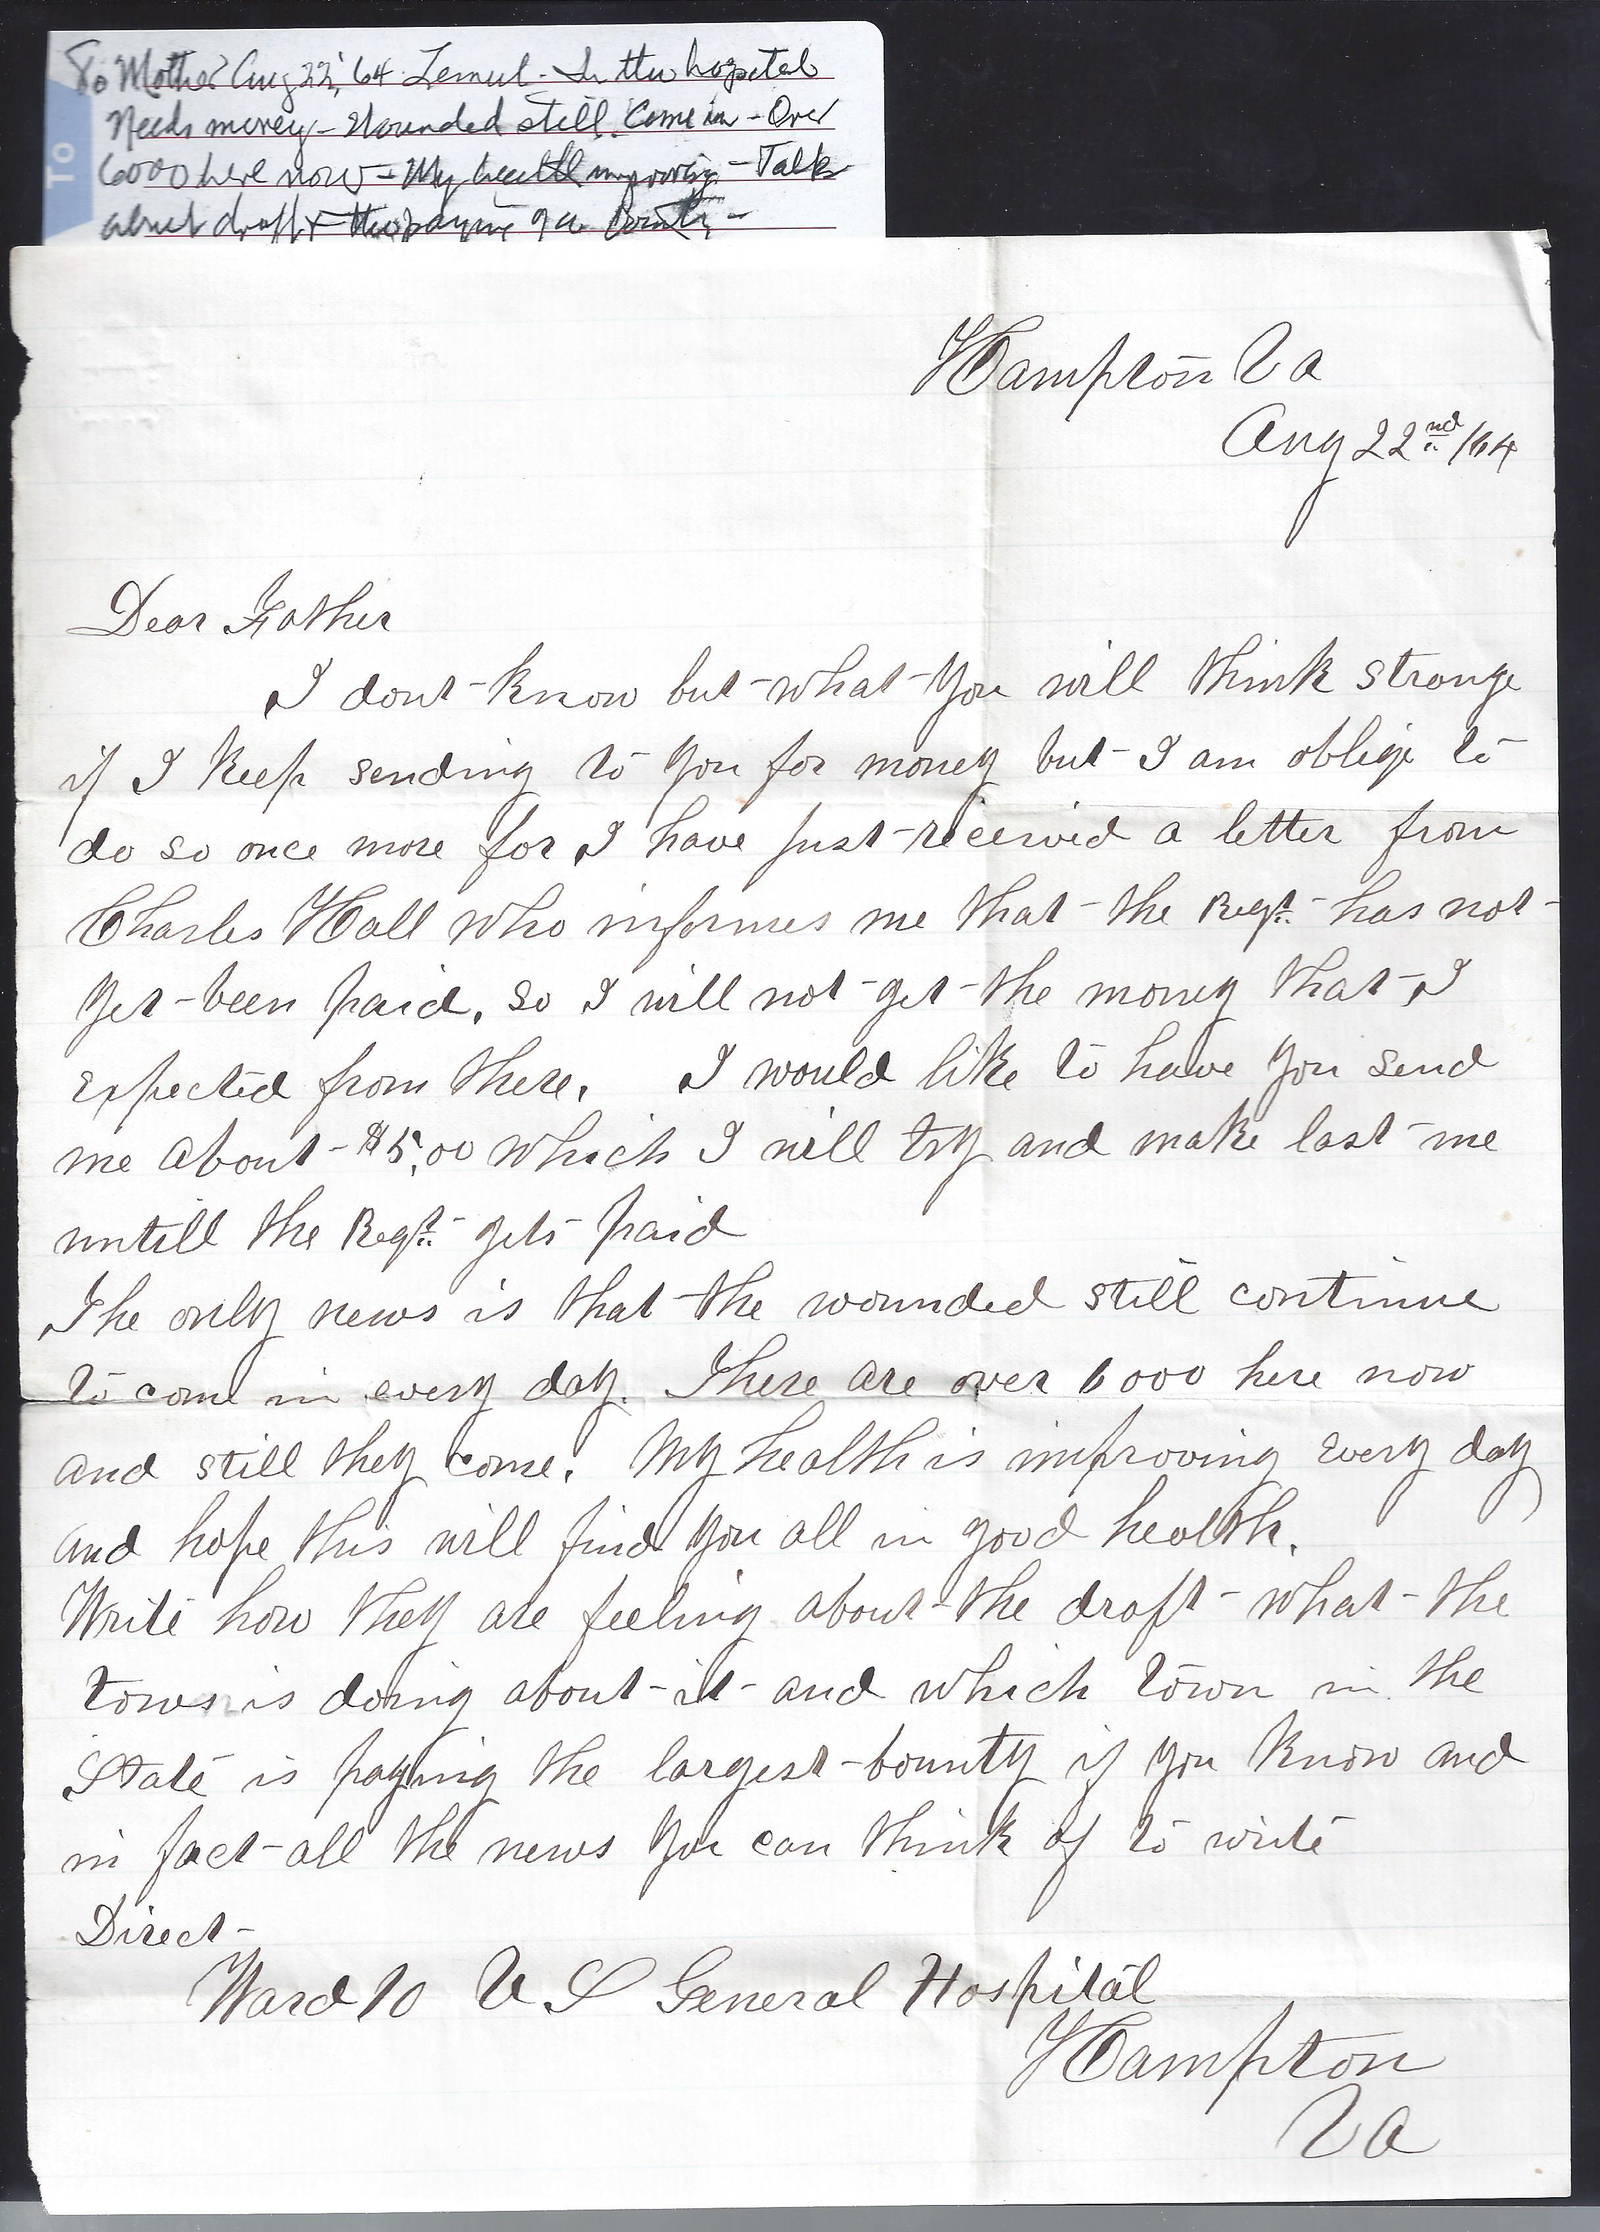 To Mother Aug 22, '64 Lemuel - In the hospital
Needs money - Wounded still come in - Over
6000 here now - My health improving - Talks
about draft & the paying of a bounty -
TO
Hampton Va
Aug 22nd /64
Dear Father
I dont know but what you will think strange
if I keep sending to you for money but I am oblige to
do so once more for I have just received a letter from
Charles Hall who informes me that the Regt. has not
yet been paid. so I will not get the money that I
expected from there. I would like to have you send
me about $5.00 which I will try and make last me
untill the Regt. gets paid
The only news is that the wounded still continue
to come in every day. There are over 6000 here now
and still they come. My health is improving every day
and hope this will find you all in good health.
Write how they are feeling about the draft what the
town is doing about it and which town in the
State is paying the largest bounty if you know and
in fact all the news you can think of to write
Direct
Ward 10 U S General Hospital
Hampton
Va